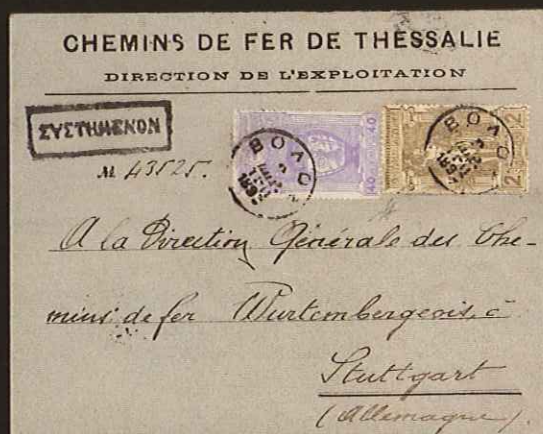 CHEMINS DE FER DE THESSALIE
DIRECTION DE L'EXPLOITATION
ΣΥΣΤΗΜΕΝΟΝ
40 40 2 2
ΒΟΛΟ ΒΟΛΟ
№ 43525.
A la Direction Générale des Che-
mins de fer Wurtembergeois, à
Stuttgart
(Allemagne).